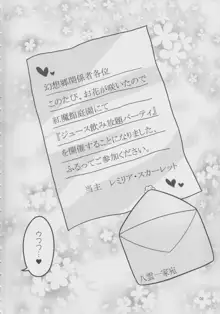 幻想郷関係者各位
このたび、お花が咲いたので
紅魔館庭園にて
『ジュース飲み放題パーティ』
を開催することになりました。
ふるってご参加ください。
当主 レミリア・スカーレット
ウフフ…♥
八雲一家宛